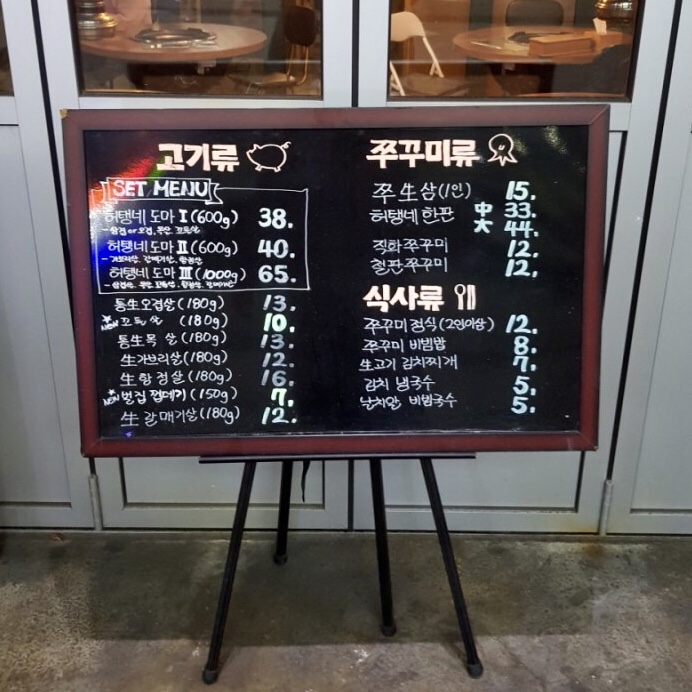 고기류
SET MENU
허탱네 도마 I (600g) 38.
- 삼겹 or 오겹, 목살, 꼬들살
허탱네 도마 II (600g) 40.
- 가브리살, 갈매기살, 항정살
허탱네 도마 III (1000g) 65.
통生오겹살 (180g) 13.
NEW 꼬들살 (180g) 10.
통生목살 (180g) 13.
生가브리살 (180g) 12.
生항정살 (180g) 16.
NEW 벌집껍데기 (150g) 7.
生갈매기살 (180g) 12.
쭈꾸미류
쭈生삼 (1인) 15.
허탱네 한판 中 33.
大 44.
직화쭈꾸미 12.
철판쭈꾸미 12.
식사류
쭈꾸미 정식 (2인이상) 12.
쭈꾸미 비빔밥 8.
生고기 김치찌개 7.
김치 냉국수 5.
날치알 비빔국수 5.